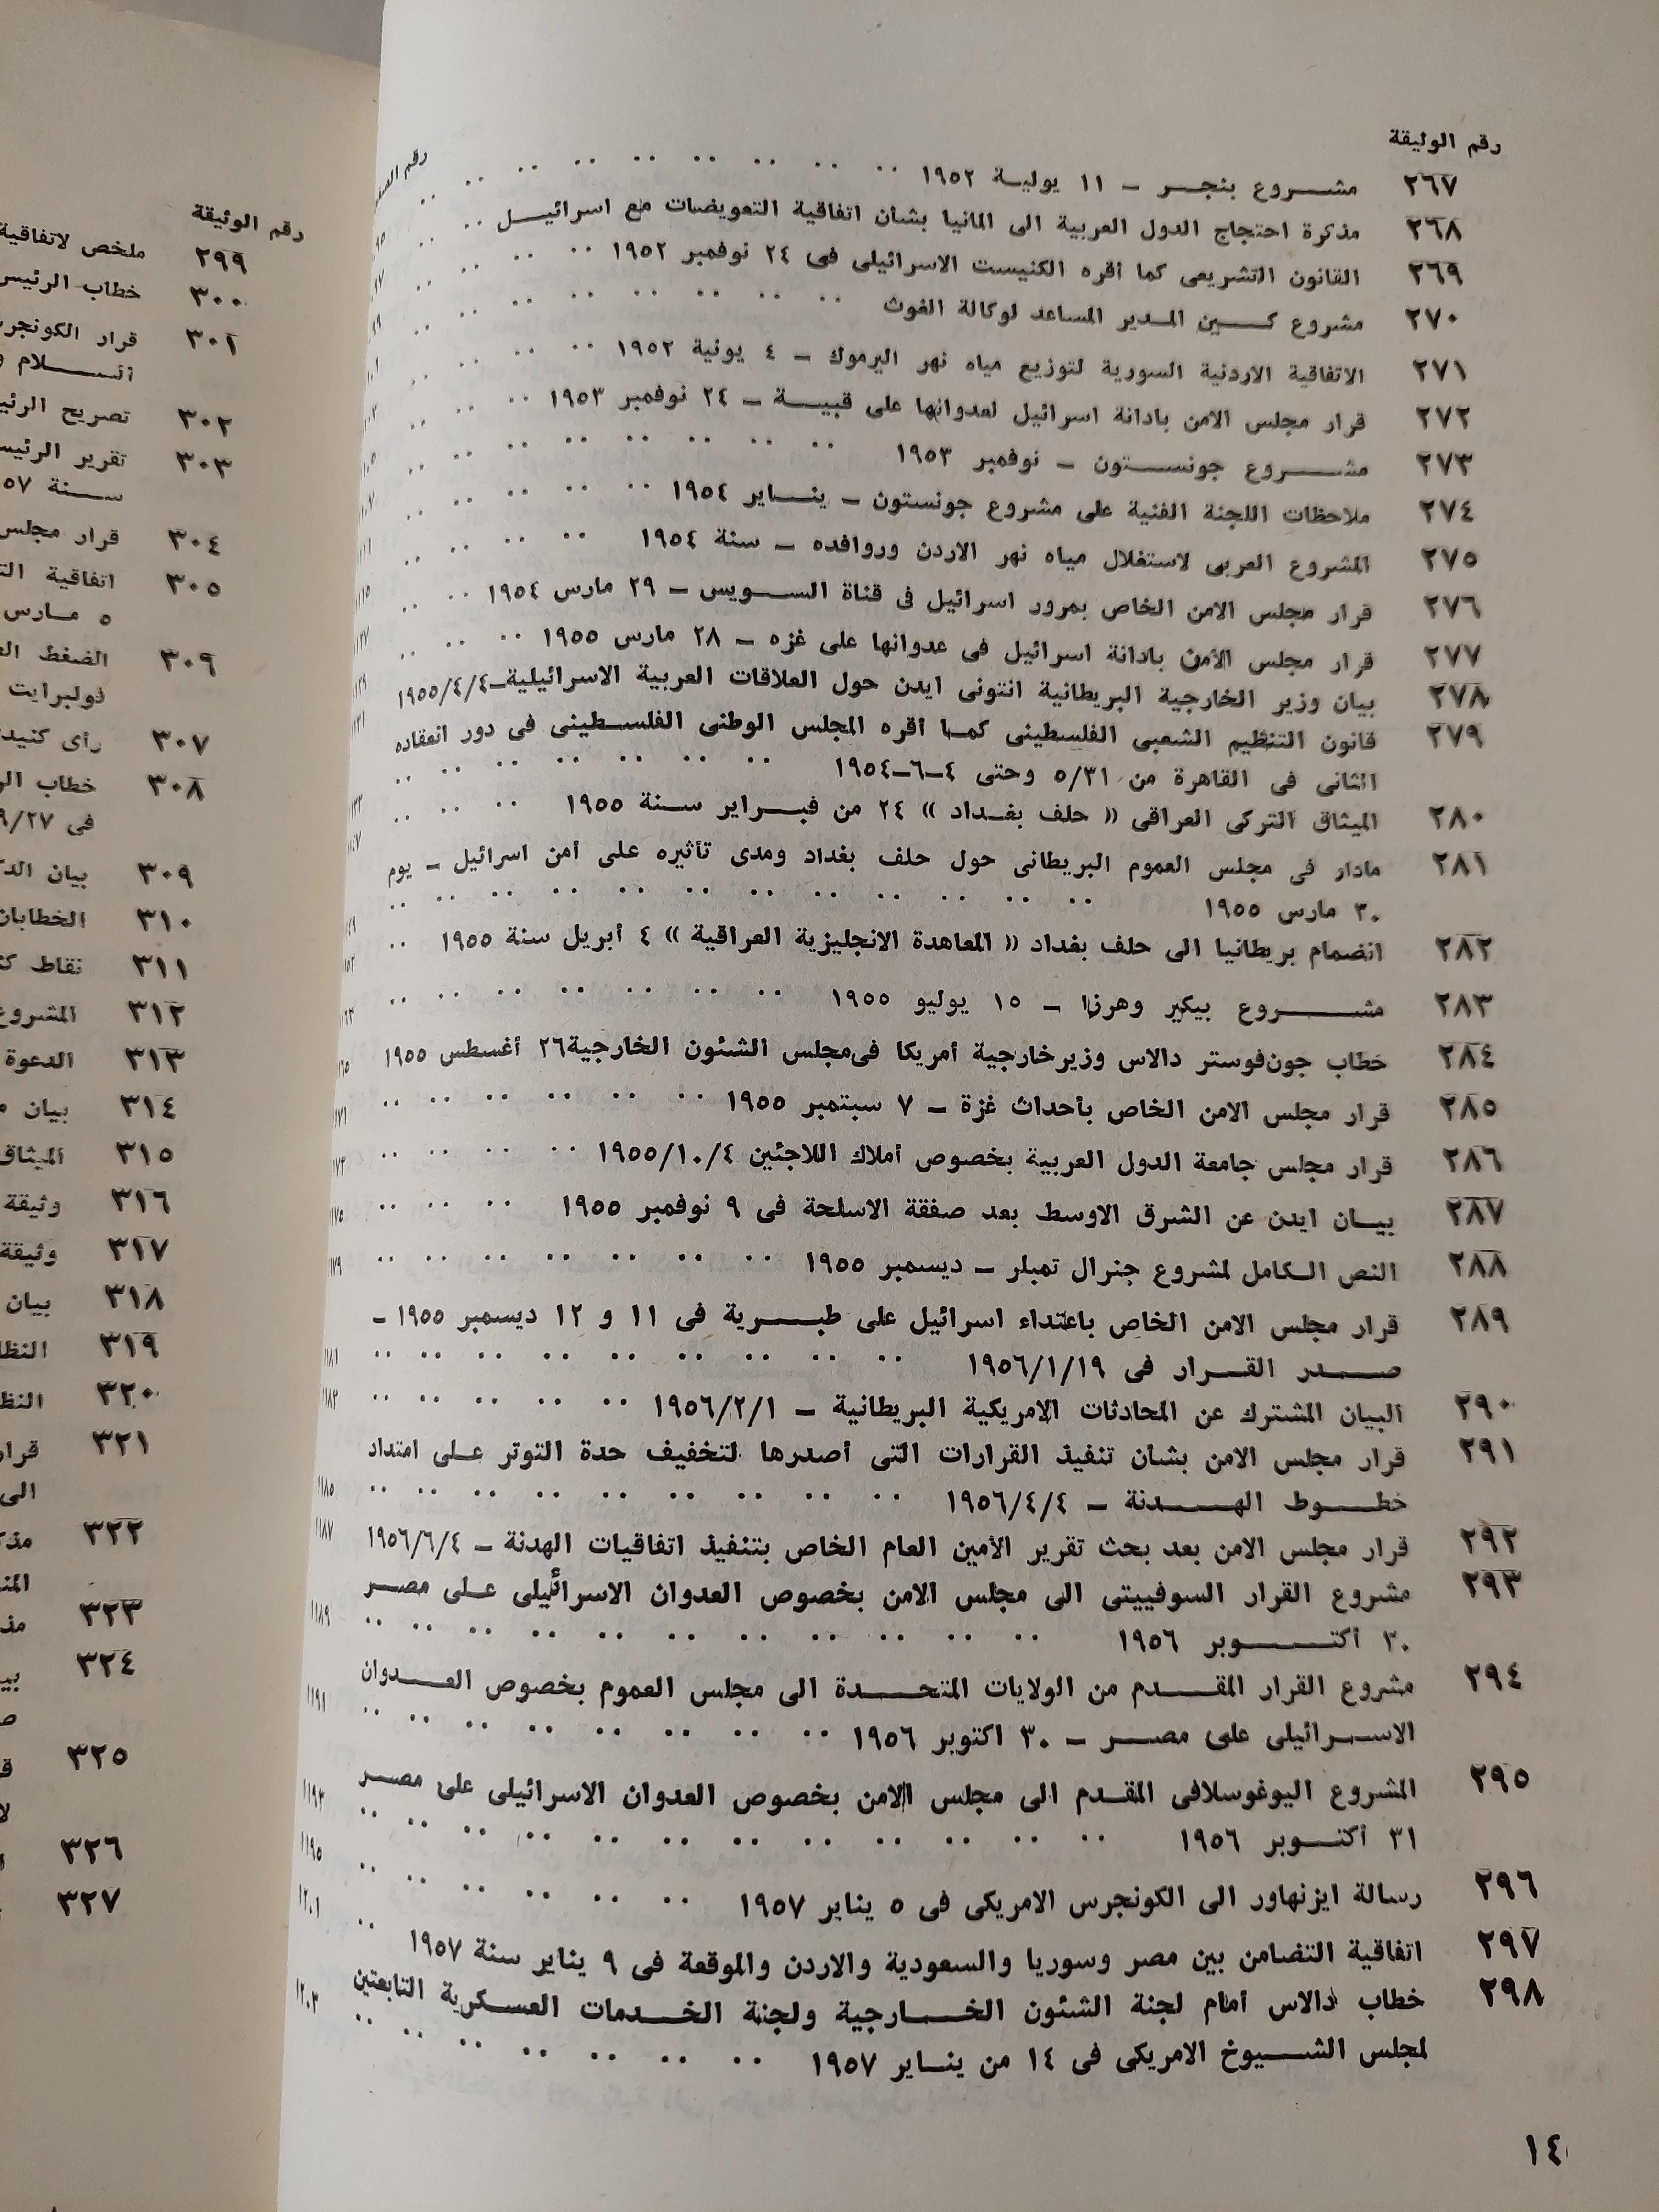 رقم الوثيقة
٢٦٧ مشروع بنجر – ١١ يولية ١٩٥٢
٢٦٨ مذكرة احتجاج الدول العربية الى المانيا بشأن اتفاقية التعويضات مع اسرائيل
٢٦٩ القانون التشريعى كما أقره الكنيست الاسرائيلى فى ٢٤ نوفمبر ١٩٥٢
٢٧٠ مشروع كين المدير المساعد لوكالة الغوث
٢٧١ الاتفاقية الاردنية السورية لتوزيع مياه نهر اليرموك – ٤ يونية ١٩٥٢
٢٧٢ قرار مجلس الامن بادانة اسرائيل لعدوانها على قبية – ٢٤ نوفمبر ١٩٥٣
٢٧٣ مشروع جونستون – نوفمبر ١٩٥٣
٢٧٤ ملاحظات اللجنة الفنية على مشروع جونستون – يناير ١٩٥٤
٢٧٥ المشروع العربى لاستغلال مياه نهر الاردن وروافده – سنة ١٩٥٤
٢٧٦ قرار مجلس الامن الخاص بمرور اسرائيل فى قناة السويس – ٢٩ مارس ١٩٥٤
٢٧٧ قرار مجلس الأمن بادانة اسرائيل فى عدوانها على غزه – ٢٨ مارس ١٩٥٥
٢٧٨ بيان وزير الخارجية البريطانية انتونى ايدن حول العلاقات العربية الاسرائيلية–١٩٥٥/٤/٤
٢٧٩ قانون التنظيم الشعبى الفلسطينى كما أقره المجلس الوطنى الفلسطينى فى دور انعقاده
الثانى فى القاهرة من ٥/٣١ وحتى ٤–٦–١٩٥٤
٢٨٠ الميثاق التركى العراقى « حلف بغداد » ٢٤ من فبراير سنة ١٩٥٥
٢٨١ مادار فى مجلس العموم البريطانى حول حلف بغداد ومدى تأثيره على أمن اسرائيل – يوم
٣٠ مارس ١٩٥٥
٢٨٢ انضمام بريطانيا الى حلف بغداد « المعاهدة الانجليزية العراقية » ٤ أبريل سنة ١٩٥٥
٢٨٣ مشروع بيكير وهرزا – ١٥ يوليو ١٩٥٥
٢٨٤ خطاب جون‌فوستر دالاس وزيرخارجية أمريكا فى‌مجلس الشئون الخارجية٢٦ أغسطس ١٩٥٥
٢٨٥ قرار مجلس الامن الخاص بأحداث غزة – ٧ سبتمبر ١٩٥٥
٢٨٦ قرار مجلس جامعة الدول العربية بخصوص أملاك اللاجئين ١٩٥٥/١٠/٤
٢٨٧ بيان ايدن عن الشرق الاوسط بعد صفقة الاسلحة فى ٩ نوفمبر ١٩٥٥
٢٨٨ النص الكامل لمشروع جنرال تمبلر – ديسمبر ١٩٥٥ ١١٧٩
٢٨٩ قرار مجلس الامن الخاص باعتداء اسرائيل على طبرية فى ١١ و ١٢ ديسمبر ١٩٥٥ –
صدر القرار فى ١٩٥٦/١/١٩ ١١٨١
٢٩٠ البيان المشترك عن المحادثات الامريكية البريطانية – ١٩٥٦/٢/١ ١١٨٣
٢٩١ قرار مجلس الامن بشأن تنفيذ القرارات التى أصدرها لتخفيف حدة التوتر على امتداد
خطوط الهدنة – ١٩٥٦/٤/٤ ١١٨٥
٢٩٢ قرار مجلس الامن بعد بحث تقرير الأمين العام الخاص بتنفيذ اتفاقيات الهدنة – ١٩٥٦/٦/٤ ١١٨٧
٢٩٣ مشروع القرار السوفييتى الى مجلس الامن بخصوص العدوان الاسرائيلى على مصر
٣٠ أكتوبر ١٩٥٦ ١١٨٩
٢٩٤ مشروع القرار المقدم من الولايات المتحدة الى مجلس العموم بخصوص العدوان
الاسرائيلى على مصر – ٣٠ اكتوبر ١٩٥٦ ١١٩١
٢٩٥ المشروع اليوغوسلافى المقدم الى مجلس الامن بخصوص العدوان الاسرائيلى على مصر
٣١ أكتوبر ١٩٥٦ ١١٩٣
٢٩٦ رسالة ايزنهاور الى الكونجرس الامريكى فى ٥ يناير ١٩٥٧ ١١٩٥
٢٩٧ اتفاقية التضامن بين مصر وسوريا والسعودية والاردن والموقعة فى ٩ يناير سنة ١٩٥٧ ١٢٠١
٢٩٨ خطاب دالاس أمام لجنة الشئون الخارجية ولجنة الخدمات العسكرية التابعتين
لمجلس الشيوخ الامريكى فى ١٤ من يناير ١٩٥٧ ١٢٠٣
١٤
رقم الوثيقة
٢٩٩ ملخص لاتفاقية
٣٠٠ خطاب الرئيس
٣٠١ قرار
السلام
٣٠٢ تصريح
٣٠٣ تقرير
سنة
٣٠٤ قرار مجلس
٣٠٥ اتفاقية
٥ مارس
٣٠٦ الضغط
فولبرايت
٣٠٧ رأى
٣٠٨ خطاب
فى
٣٠٩ بيان
٣١٠
٣١١ نقاط
٣١٢ المشروع
٣١٣ الدعوة
٣١٤ بيان
٣١٥ الميثاق
٣١٦ وثيقة
٣١٧ وثيقة
٣١٨ بيان
٣١٩
٣٢٠
٣٢١
الى
٣٢٢
٣٢٣
٣٢٤
٣٢٥
٣٢٦
٣٢٧